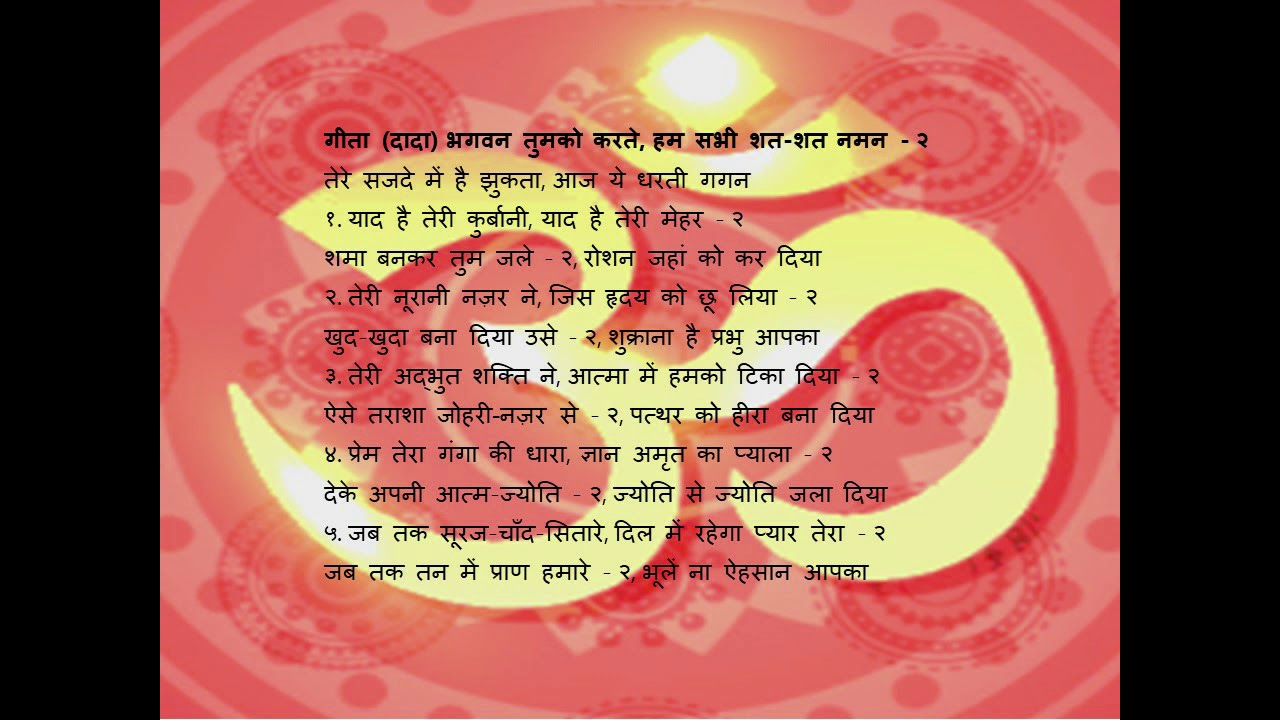 गीता (दादा) भगवन तुमको करते, हम सभी शत-शत नमन - २
तेरे सजदे में है झुकता, आज ये धरती गगन
१. याद है तेरी कुर्बानी, याद है तेरी मेहर - २
शमा बनकर तुम जले - २, रोशन जहां को कर दिया
२. तेरी नूरानी नज़र ने, जिस हृदय को छू लिया - २
खुद-खुदा बना दिया उसे - २, शुक्राना है प्रभु आपका
३. तेरी अद्‌भुत शक्ति ने, आत्मा में हमको टिका दिया - २
ऐसे तराशा जोहरी-नज़र से - २, पत्थर को हीरा बना दिया
४. प्रेम तेरा गंगा की धारा, ज्ञान अमृत का प्याला - २
देके अपनी आत्म-ज्योति - २, ज्योति से ज्योति जला दिया
५. जब तक सूरज-चाँद-सितारे, दिल में रहेगा प्यार तेरा - २
जब तक तन में प्राण हमारे - २, भूलें ना ऐहसान आपका